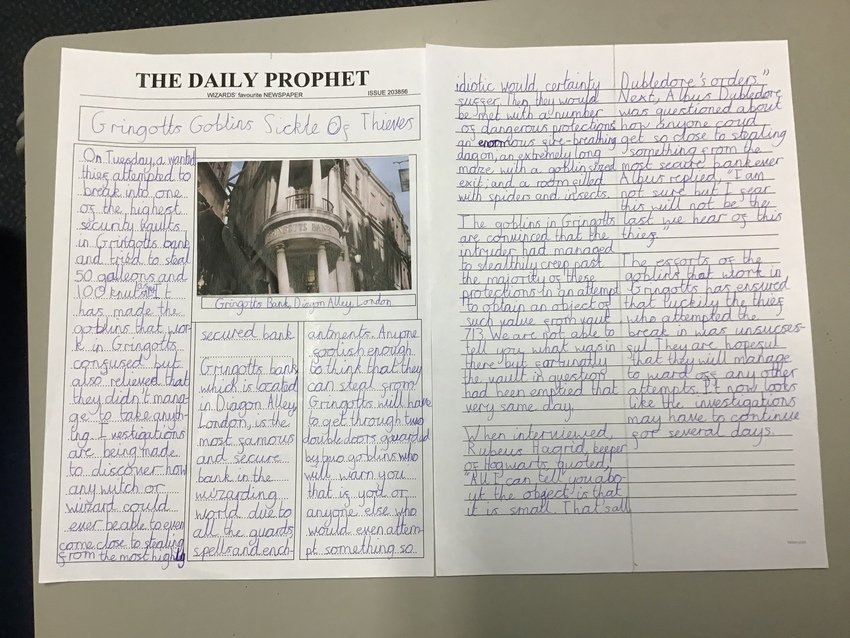 THE DAILY PROPHET
WIZARDS' favourite NEWSPAPER
ISSUE 203856
Gringotts Goblins Sickle Of Thieves
On Tuesday, a wanted
thief attempted to
break into one
of the highest
security vaults
in Gringotts bank
and tried to steal
50 galleons and
100 knuts. It
has made the
goblins that wor-
k in Gringotts
confused but
also relieved that
they didn't mana-
ge to take anyth-
ing. Investigations
are being made
to discover how
any witch or
wizard could
ever be able to even
come close to stealing
from the most highly
GRINGOTTS BANK
Gringotts Bank, Diagon Alley, London
secured bank
Gringotts bank
which is located
in Diagon Alley,
London, is the
most famous
and secure
bank in the
wizarding
world due to
all the guards,
spells and ench-
antments. Anyone
foolish enough
to think that they
can steal from
Gringotts will have
to get through two
double doors guarded
by two goblins who
will warn you
that if you or
anyone else who
would even attem-
pt something so
idiotic would certainty
suffer. Then they would
be met with a number
of dangerous protections
an enormous fire-breathing
dagon, an extremely long
maze with a goblin sized
exit and a room filled
with spiders and insects.
The goblins in Gringotts
are convinced that the
intruder had managed
to stealthily creep past
the majority of these
protections in an attempt
to obtain an object of
such value from vault
713. We are not able to
tell you what was in
there but fortunatly
the vault in question
had been emptied that
very same day.
When interviewed,
Rubeus Hagrid, keeper
of Hogwarts, quoted,
"All I can tell you abo-
ut the object is that
it is small. That's all
Dubledore's orders."
Next, Albus Dubledore
was questioned about
how anyone coud
get so close to stealing
something from the
most secure bank ever
Albus replied, "I am
not sure but I fear
this will not be the
last we hear of this
thief."
The efforts of the
goblins that work in
Gringotts has ensured
that luckily the thief
who attempted the
break in was unsucess-
ful. They are hopeful
that they will manage
to ward off any other
attempts. It now looks
like the investigations
may have to continue
for several days.